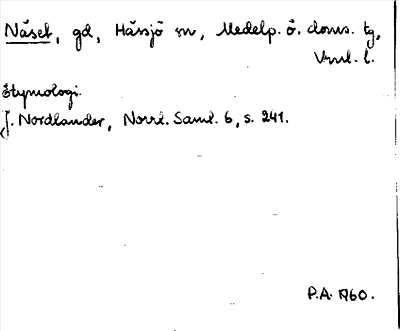 Näset, gd, Hässjö sn, Medelp. ö. doms. tg,
Vml. l.
Etymologi.
J. Nordlander, Norrl. Saml. 6, s. 241.
P.A. 1960.